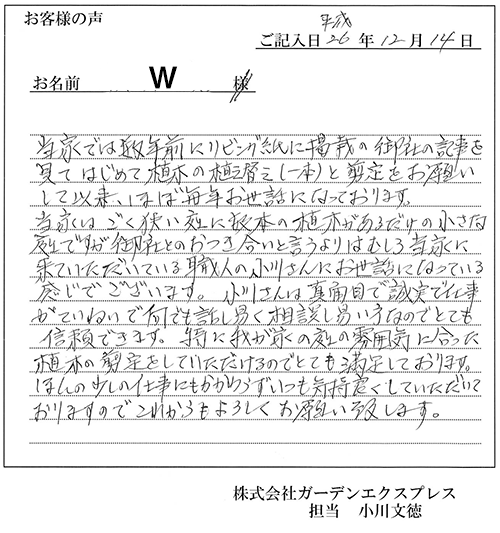 お客様の声
平成
ご記入日 26 年 12 月 14 日
お名前 W 様
当家では数年前にリビング紙に掲載の御社の記事を
見てはじめて植木の植替え(一本)と剪定をお願い
して以来、ほぼ毎年お世話になっております。
当家はごく狭い庭に数本の植木があるだけの小さな
庭ですが御社とのおつき合いと言うよりはむしろ当家に
来ていただいている職人の小川さんにお世話になっている
感じでございます。小川さんは真面目で誠実で仕事
がていねいで何でも話し易く相談し易い方なのでとても
信頼できます。特に我が家の庭の雰囲気に合った
植木の剪定をしていただけるのでとても満足しております。
ほんの少しの仕事にもかかわらずいつも気持良くしていただいて
おりますのでこれからもよろしくお願い致します。
株式会社ガーデンエクスプレス
担当 小川文徳